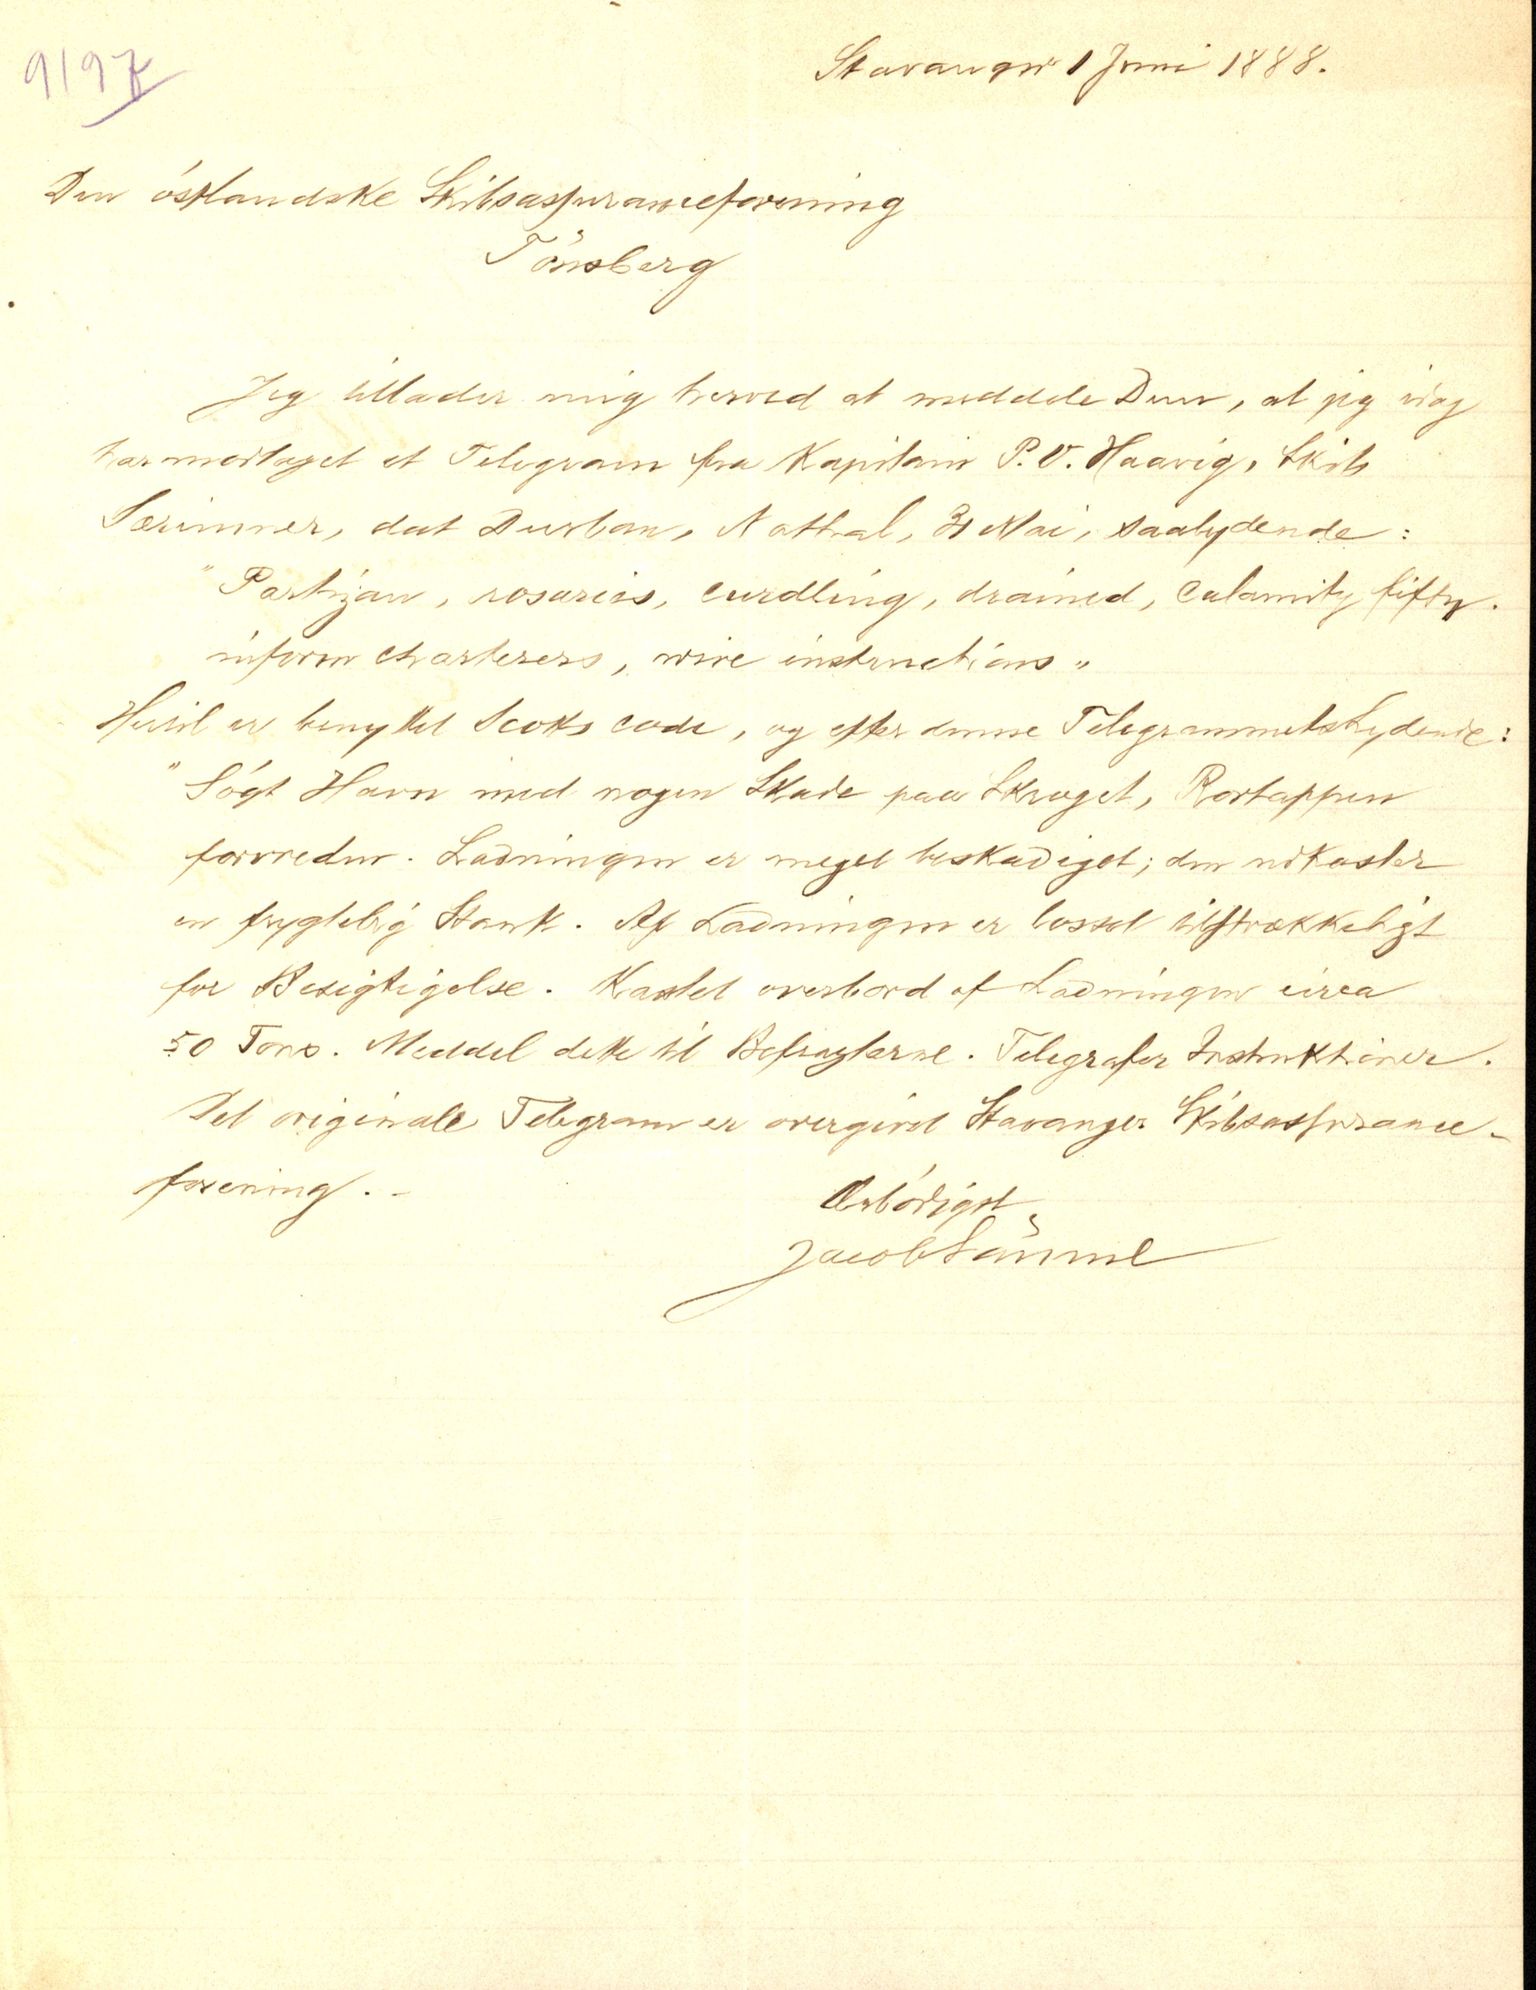 9197
Stavanger 1 Juni 1888.
Den östlandske Skibsassuranceforening
Tönsberg
Jeg tillader mig herved at meddele Dem, at jeg idag
har modtaget et Telegram fra Kapitain P. V. Haavig, Skib
Særimner, dat Durban, Nathal, 31 Mai, saalydende:
"Partizan, rosaries, curdling, drained, calamity fifty.
inform charterers, wire instructions"
Hertil er benyttet Scotts code, og efter denne Telegrammets Lydende:
"Sögt Havn med nogen Skade paa Skroget, Rortappen
forvreden. Ladningen er meget beskadiget; den udkaster
en frygtelig Stank. Af Ladningen er losset tilstrækkeligt
for Besigtigelse. Kastet overbord af Ladningen circa
50 Tons. Meddel dette til Befragterne. Telegrafer Instruktioner.
Det originale Telegram er overgivet Stavanger Skibsassurance-
forening. -
Ærbödigst
Jacob Sömme